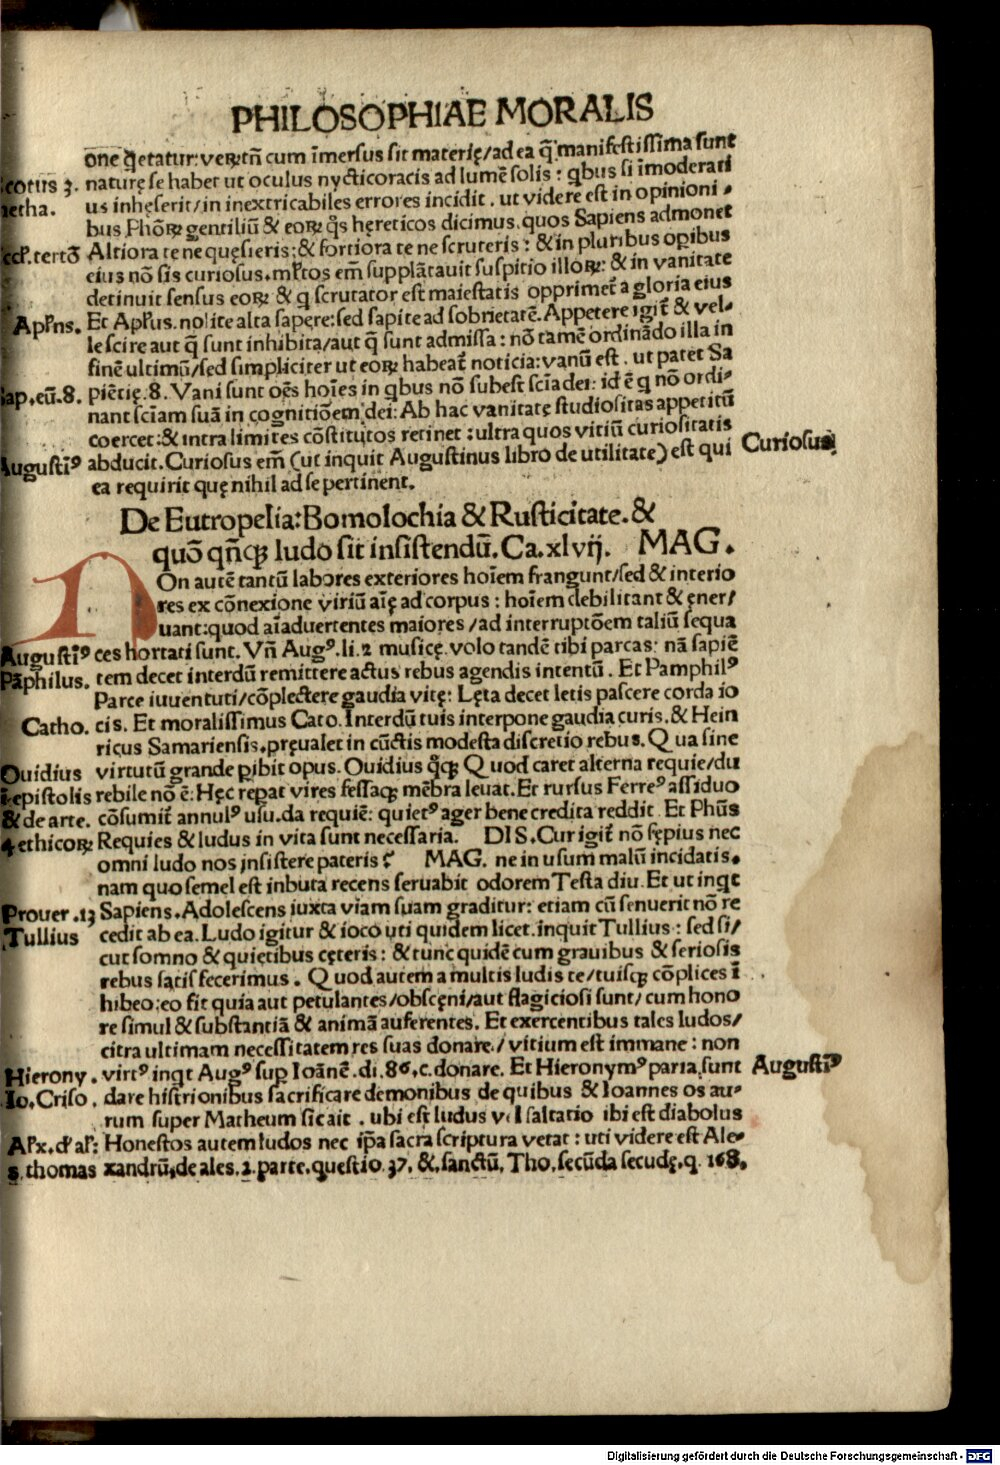 PHILOSOPHIAE MORALIS
one q̄etatur: veꝝtn̄ cum īmersus sit materię/ad ea q̄ manifestissima sunt
Scotus 3. naturę se habet ut oculus nycticoracis ad lumē solis: qbus si īmoderati
metha. us inhęserit/in inextricabiles errores incidit. ut videre est in opinioni-
bus Phōꝝ gentiliū & eoꝝ q̄s hęreticos dicimus. quos Sapiens admonet
Eccl̓. tertō Altiora te ne quęsieris: & fortiora te ne scruteris: & in pluribus oꝑibus
eius nō sis curiosus. ml̓tos em̄ supplātauit suspitio illoꝝ: & in vanitate
detinuit sensus eoꝝ & q scrutator est maiestatis opprimet̄ a gloria eius
Apl̓ns. Et Apl̓us. nolite alta sapere: sed sapite ad sobrietatē. Appetere igit̄ & vel-
le scire aut q̄ sunt inhibita/aut q̄ sunt admissa: nō tamē ordinādo illa in
finē ultimū/sed simpliciter ut eoꝝ habeat̄ noticia: vanū est. ut patet Sa
Sap. cū. 8. piētię. 8. Vani sunt oēs hoīes in qbus nō subest scīa dei: id ē q nō ordi-
nant scīam suā in cognitiōem dei: Ab hac vanitate studiositas appetitū
coercet: & intra limites cōstitutos retinet: ultra quos vitiū curiositatis
Augustī⁹ abducit. Curiosus em̄ (ut inquit Augustinus libro de utilitate) est qui Curiosus
ea requirit quę nihil ad se pertinent.
De Eutropelia: Bomolochia & Rusticitate. &
quō qn̄cꝗ ludo sit insistendū. Ca. xlvij. MAG.
NOn autē tantū labores exteriores hoīem frangunt/sed & interio
res ex cōnexione viriū aīę ad corpus: hoīem debilitant & ęner/
uant: quod aīaduertentes maiores/ad interruptōem taliū sequa
Augustī⁹ ces hortati sunt. Vn̄ Aug⁹. li. 2 musicę. volo tandē tibi parcas: nā sapiē
Pāphilus. tem decet interdū remittere actus rebus agendis intentū. Et Pamphil⁹
Parce iuuentuti/cōplectere gaudia vitę: Lęta decet letis pascere corda io
Catho. cis. Et moralissimus Cato. Interdū tuis interpone gaudia curis. & Hein
ricus Samariensis. pręualet in cūctis modesta discretio rebus. Qua sine
Ouidius virtutū grande ꝑibit opus. Ouidius q̄cꝗ Quod caret alterna requie/du
ī epistolis rebile nō ē: Hęc reꝑat vires fessaqꝫ mēbra leuat. Et rursus Ferre⁹ assiduo
& de arte. cōsumit̄ annul⁹ usu. da requiē: quiet⁹ ager bene credita reddit. Et Phūs
4 ethicoꝝ Requies & ludus in vita sunt necessaria. DIS. Cur igit̄ nō sępius nec
omni ludo nos insistere pateris? MAG. ne in usum malū incidatis.
nam quo semel est inbuta recens seruabit odorem Testa diu. Et ut inqt
Prouer. 13 Sapiens. Adolescens iuxta viam suam graditur: etiam cū senuerit nō re
Tullius cedit ab ea. Ludo igitur & ioco uti quidem licet. inquit Tullius: sed si/
cut somno & quietibus cęteris: & tunc quidē cum grauibus & seriosis
rebus satis fecerimus. Quod autem a multis ludis te/tuisqꝫ cōplices ī
hibeo: eo fit quia aut petulantes/obscęni/aut flagiciosi sunt/cum hono
re simul & substantiā & animā auferentes. Et exercentibus tales ludos/
citra ultimam necessitatem res suas donare/vitium est immane: non
Hierony. virt⁹ inqt Aug⁹ suꝑ Ioānē. di. 86. c. donare. Et Hieronym⁹ paria sunt Augustī⁹
Io. Criso. dare histrionibus sacrificare demonibus de quibus & Ioannes os au-
rum super Matheum sic ait. ubi est ludus vel saltatio ibi est diabolus
Al̓x. d̓ al̓: Honestos autem ludos nec ip̄a sacra scriptura vetat: uti videre est Ale-
s. thomas xandrū, de ales. 2. parte. questio. 37. &. sanctū. Tho. secūda secudę. q. 168.
Digitalisierung gefördert durch die Deutsche Forschungsgemeinschaft - DFG